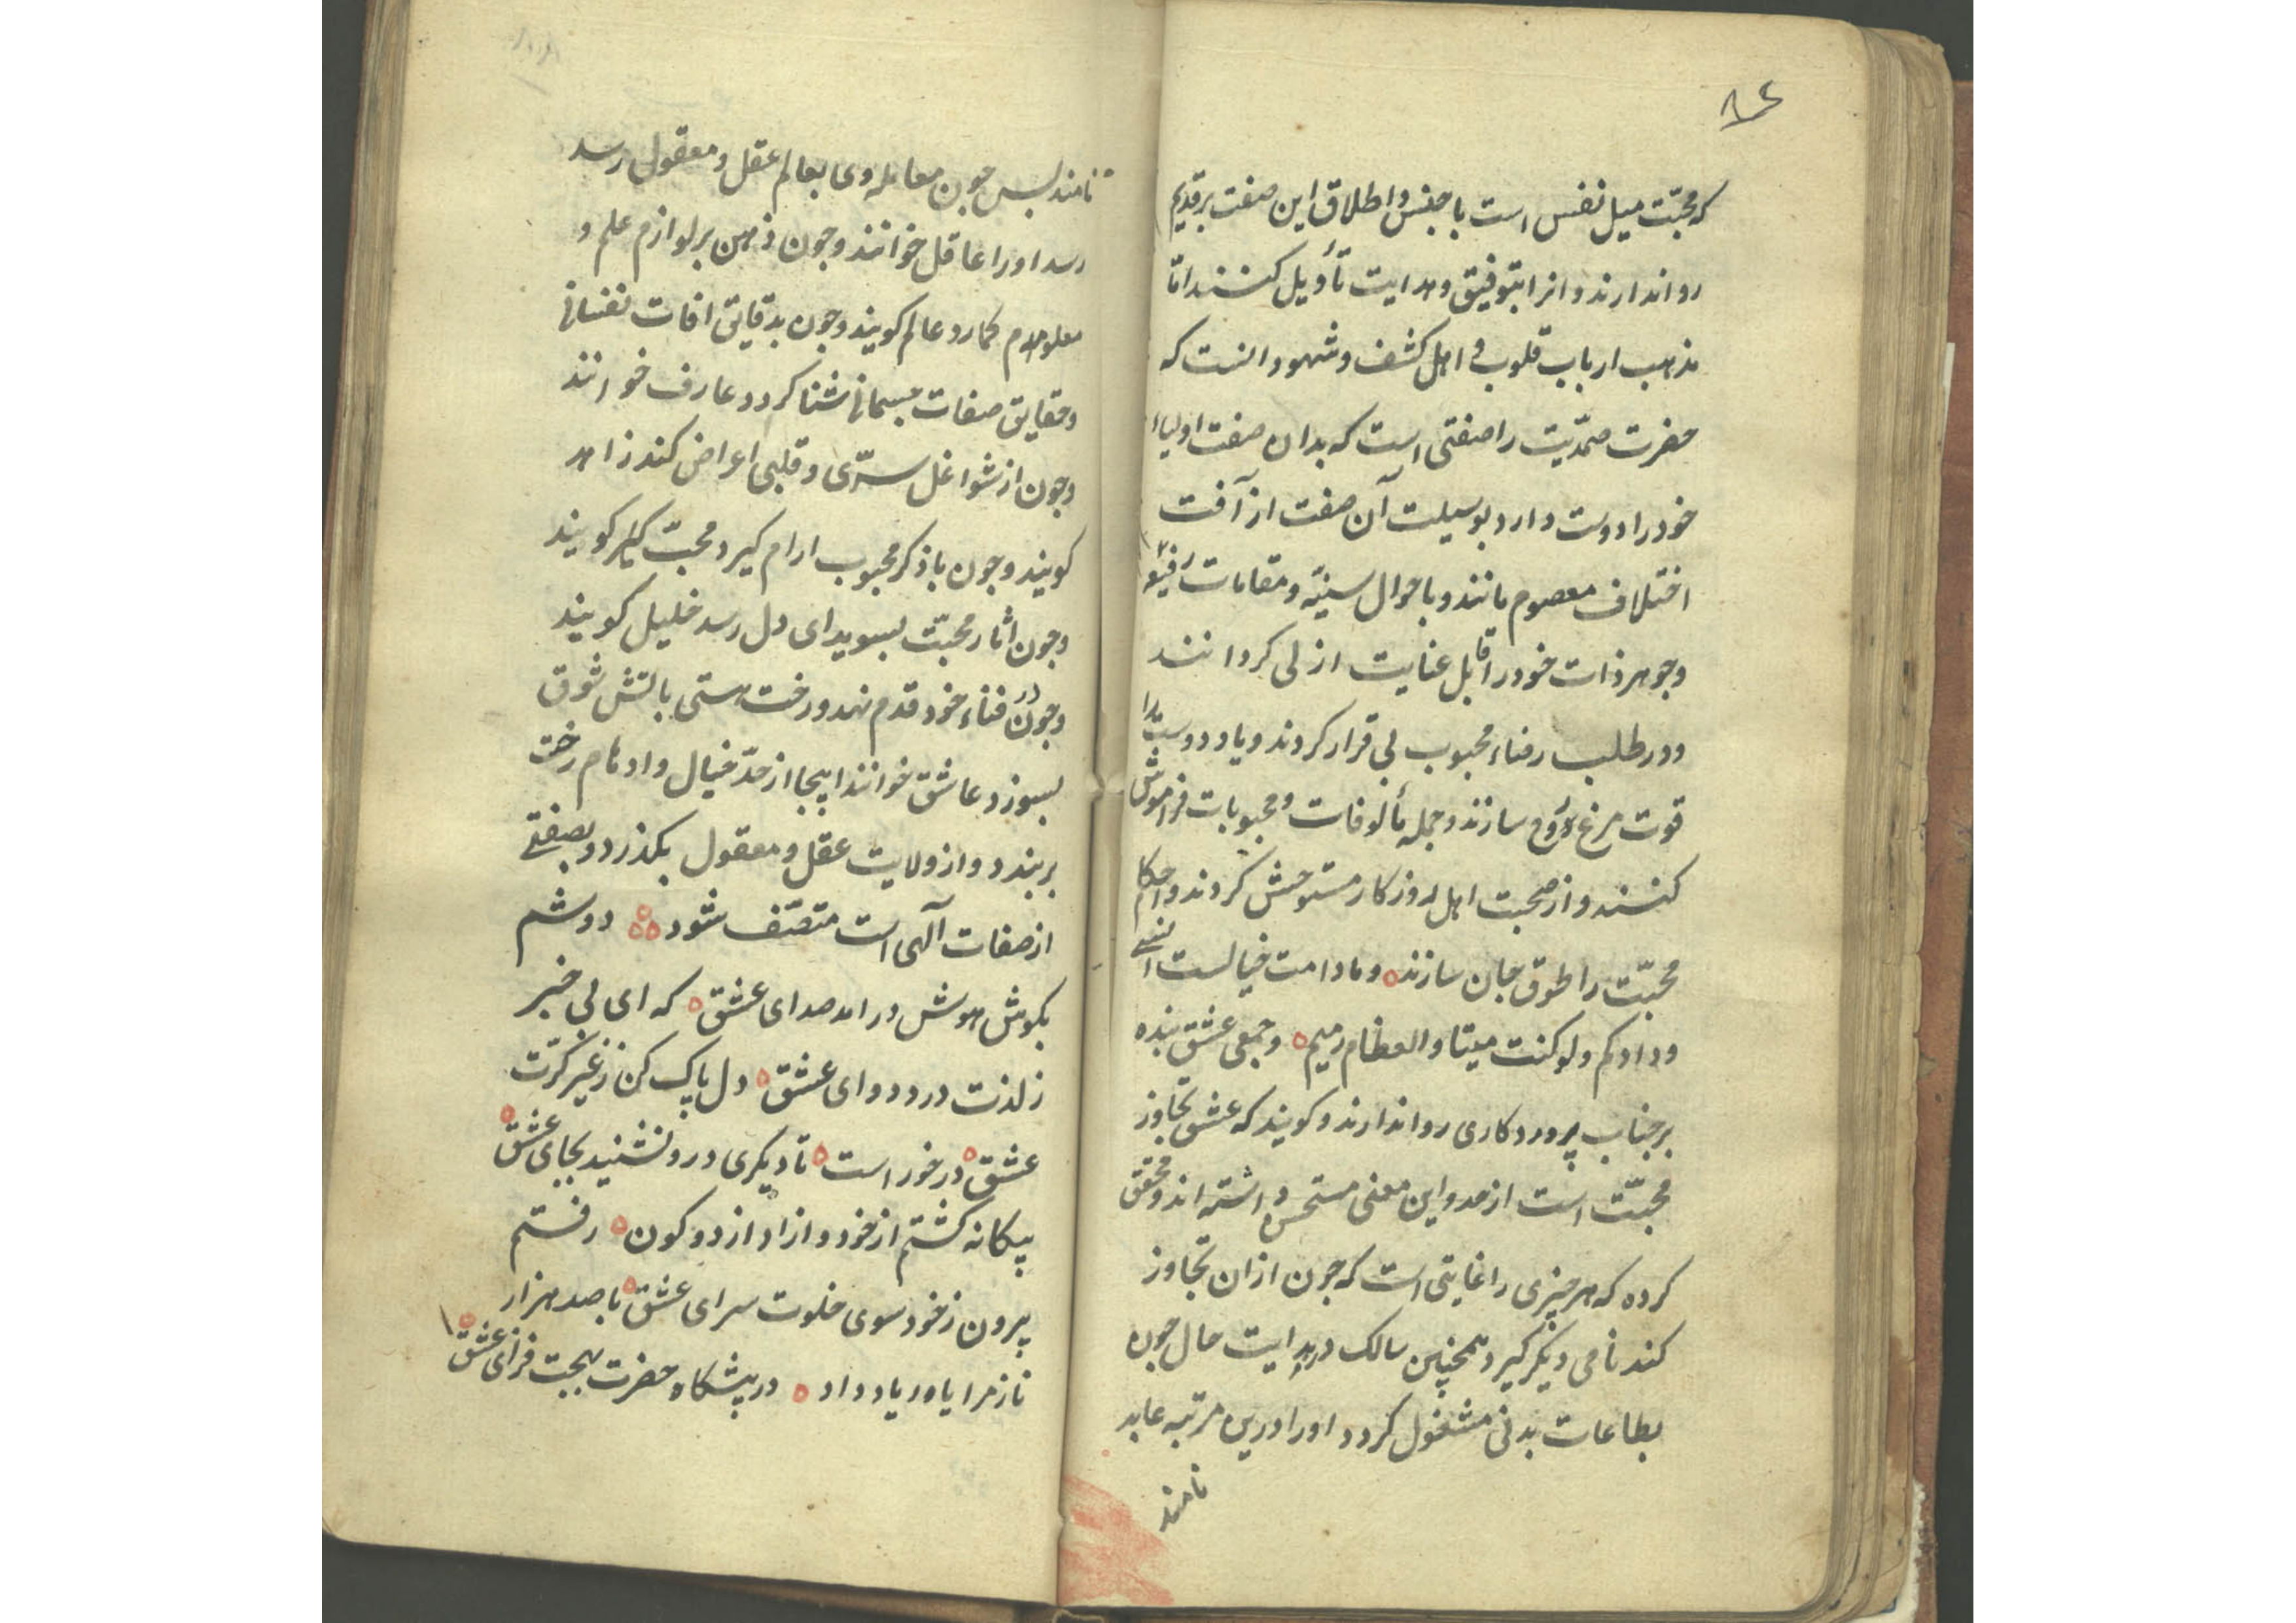 ۸۴
که محبّت میل نفس است با جنس و اطلاق این صفت بر قدیم
روا ندارند و انرا بتوفیق و هدایت تأویل کنند امّا
مذهب ارباب قلوب و اهل کشف و شهود انست که
حضرت صمدّیت را صفتی است که بدان صفت اولیاء
خود را دوست دارد بوسیلت آن صفت از آفت
اختلاف معصوم مانند و باحوال سنیّه و مقامات رفیعه
و جوهر ذات خود را قابل عنایت ازلی کردانند
و در طلب رضاء محبوب بی قرار کردند و یاد دوست را
قوت مرغ روح سازند و جمله مألوفات و محبوبات فراموش
کنند و از صحبت اهل روزکار مستوحش کردند و احکام
محبّت را طوق جان سازند وما دامت خیالست انسی
ودادکم ولو کنت میتا والعظام رمیم و جمعی عشق بنده
بر جناب پروردکاری روا ندارند و کویند که عشق تجاوز
محبّت است از حد و این معنی مستحسن داشته اند و محقق
کرده که هر چیزی را غایتی است که چون از ان تجاوز
کند نامی دیکر کیرد همچنین سالک در بدایت حال جون
بطاعات بدنی مشغول کردد او را درین مرتبه عابد
نامند
نامند پس جون معامله وی بعالم عقل و معقول رسد
رسد او را عاقل خوانند و جون ذهن بر لوازم علم و
معلوم کمارد عالم کویند و جون بدقایق افات نفسانی
و حقایق صفات جسمانی شنا کردد عارف خوانند
و جون از شواغل سرّی و قلبی اعراض کند زاهد
کویند و جون با ذکر محبوب ارام کیرد محبّ کویند
و جون اثار محبّت بسویدای دل رسد خلیل کویند
و جون در فناء خود قدم نهد و رخت هستی باتش شوق
بسوزد عاشق خوانند اینجا از حدّ خیال و اوهام رخت
بر بندد و از ولایت عقل و معقول بکذرد و بصفتی
از صفات آلهی است متصّف شود دوشم
بکوش هوش در امد صدای عشق که ای بی خبر
ز لذت درد و دوای عشق دل پاک کن ز غیر کرت
عشق در خور است تا دیکری درو ننشیند بجای عشق
بیکانه کشتم از خود و ازاد از دو کون رفتم
برون ز خود سوی خلوت سرای عشق با صد هزار
ناز مرا یاور یاد داد در پیشکاه حضرت بهجت فزای عشق